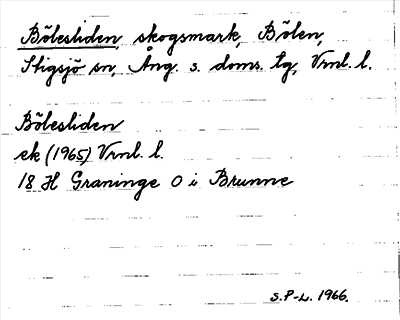 Bölesliden, skogsmark, Bölen,
Stigsjö sn, Ång. s. doms. tg, Vrnl. l.
Bölesliden
ek (1965) Vrnl. l.
18 H Graninge O i Brunne
S.P-L. 1966.